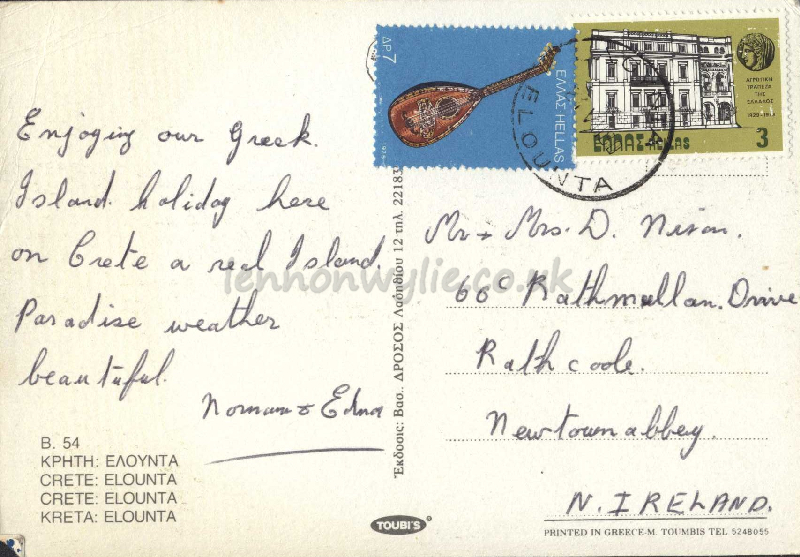 Enjoying our Greek.
Island holiday here
on Crete a real Island.
Paradise weather
beautiful.
Norman & Edna
B. 54
ΚΡΗΤΗ: ΕΛΟΥΝΤΑ
CRETE: ELOUNTA
CRETE: ELOUNTA
KRETA: ELOUNTA
Έκδοσις: Βασ.. ΔΡΟΣΟΣ 12 τηλ. 22183
TOUBI'S
ΔΡ 7
ΕΛΛΑΣ HELLAS
ΑΓΡΟΤΙΚΗ
ΤΡΑΠΕΖΑ
ΤΗΣ
ΕΛΛΑΔΟΣ
3
ΕΛΛΑΣ-HELLAS
ELOUNTA
Mr + Mrs. D. Nixon.
66c Rathmullan. Drive
Rathcoole.
Newtownabbey.
N. IRELAND.
PRINTED IN GREECE-M. TOUMBIS TEL 5248055
lennonwylie.co.uk